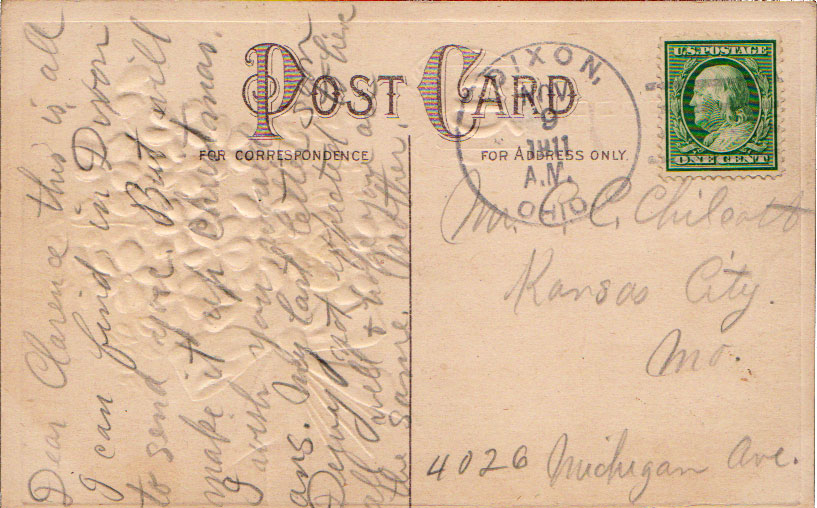 POST CARD
FOR CORRESPONDENCE
FOR ADDRESS ONLY.
DIXON,
NOV
9
1911
A.M.
OHIO
U.S. POSTAGE
ONE CENT
Mr. C. C. Chilcott
Kansas City
Mo.
4026 Michigan Ave.
Dear Clarence this is all
I can find in Dixon
to send you. But will
make it up Christmas.
I wish you would
ans. My last letter
just expected
all well & hope you are
the same. Mother.